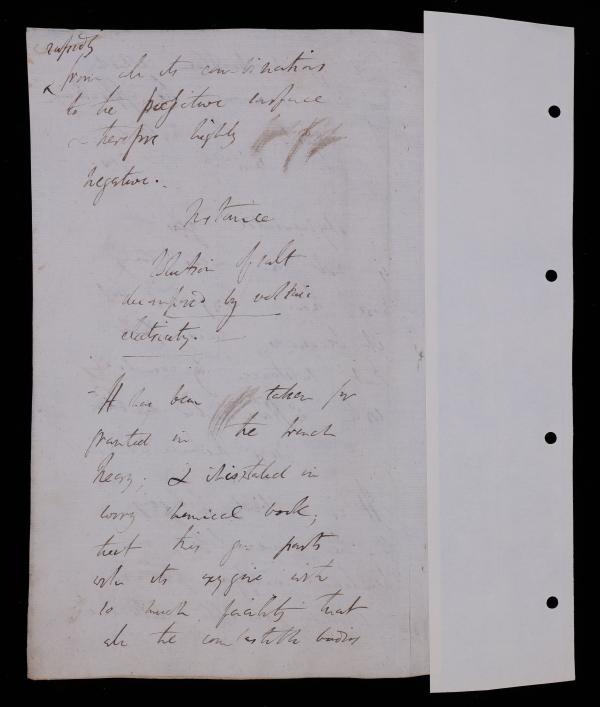 rapidly
from all its combinations
to the positive surface
& therefore highly
negative.
Instance
Solution of salt
decomposed by voltaic
electricity.
- It has been taken for
granted in the french
theory; & it is stated in
every chemical book;
that this gas parts
with its oxygene with
so much facility that
all the combustible bodies